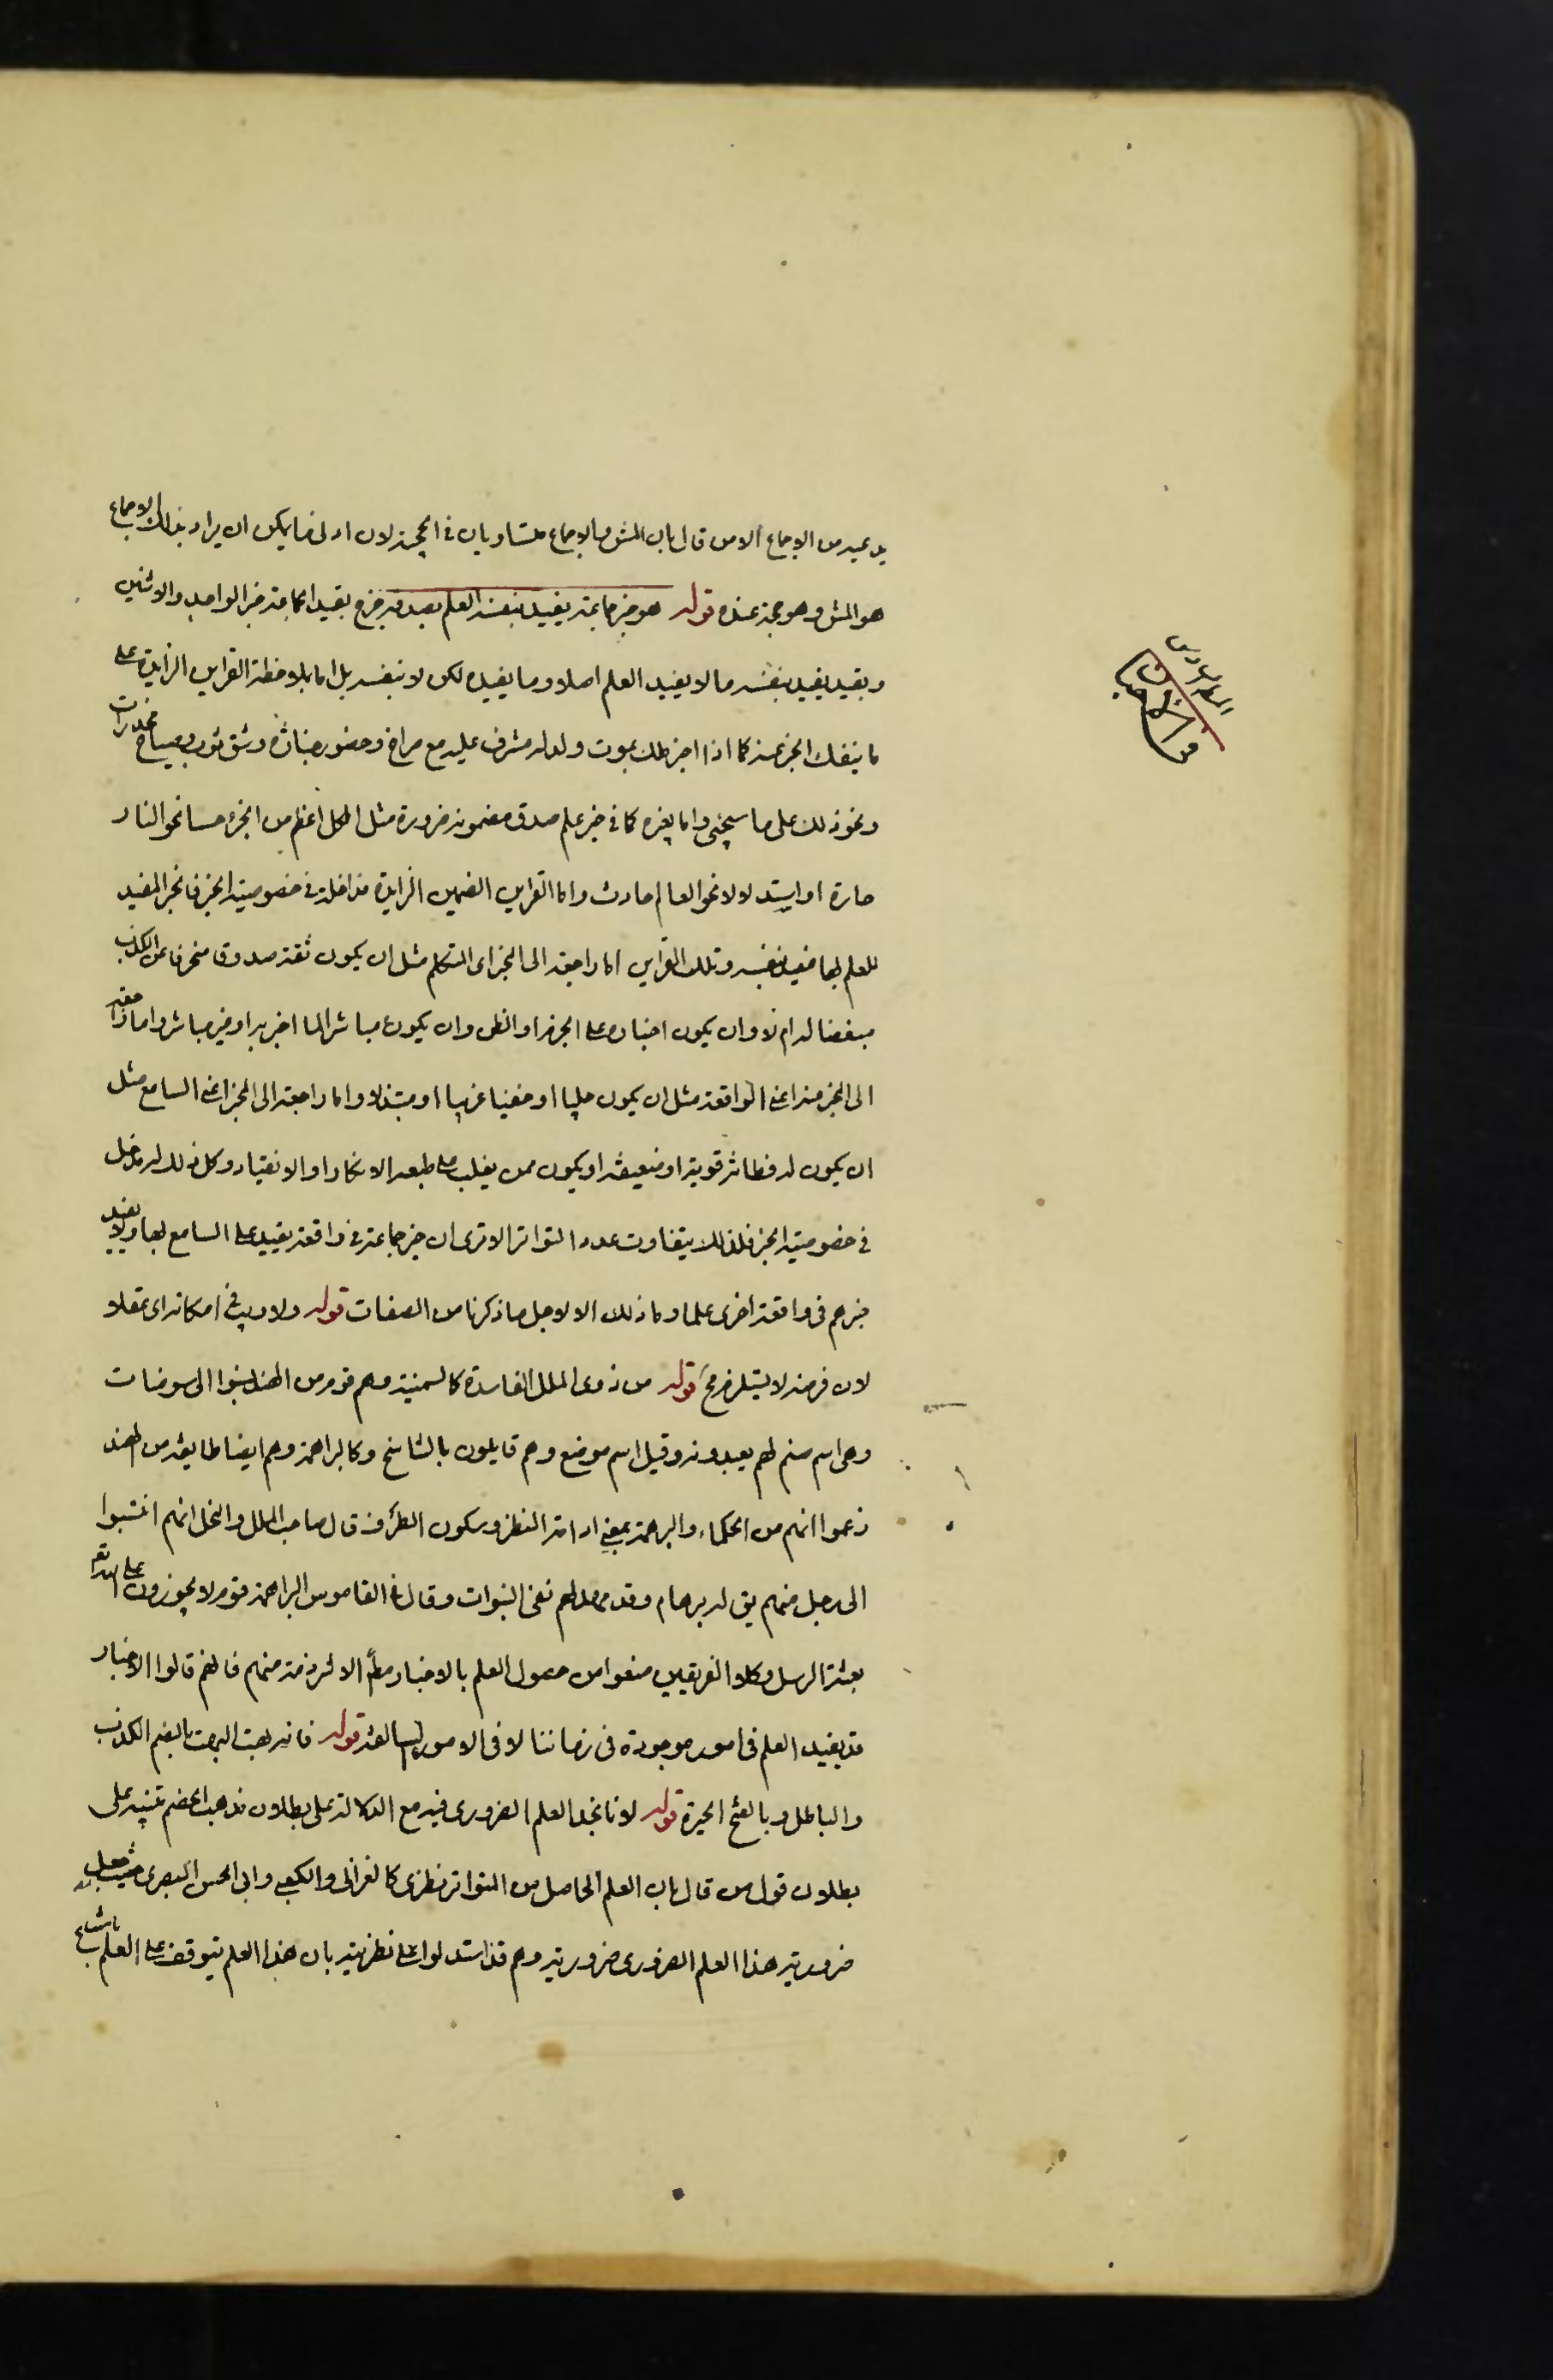 يدعيه من الاجماع الا من قال بان المش والاجماع متساويان في الحجية لان اولى ما يمكن ان يراد بذلك الاجماع
هو المش وهو حجة عنده قوله هو خبر جماعة يفيد بنفسه العلم بصدقه خرج بقيد الجماعة خبر الواحد والاثنين
وبقيد يفيد بنفسه ما لا يفيد العلم اصلا وما يفيده لكن لا بنفسه بل اما بملاحظة القراين الزايدة على
ما ينفك الخبر عنه كما اذا اخبر ملك بموت ولد له مشرف عليه مع صراخ وحضور جنازة وشق ثوب وصياح مخدرات
ونحو ذلك على ما سيجئ واما بغيره كما في خبر علم صدق مضمونه ضرورة مثل الكل اعظم من الجزء حسا نحو النار
حارة او استدلالا نحو العالم حادث واما القراين الغير الزايدة فداخلة في خصوصية الخبر فالخبر المفيد
للعلم بها مفيد بنفسه وتلك القراين اما راجعة الى المخبر اى المتكلم مثل ان يكون ثقة صدوق منحرفا عن الكذب
مبغضا له ام لا وان يكون اخباره على الجزم او الظن وان يكون مباشرا لما اخبر به او غير مباشر واما راجعة
الى المخبر عنه اعني الواقعة مثل ان يكون جليا او خفيا غريبا او مبتذلا واما راجعة الى المخبر اعني السامع مثل
ان يكون له فطانة قوية او ضعيفة او يكون ممن يغلب على طبعه الانكار او الانقياد وكل ذلك له مدخل
في خصوصية الخبر فلذلك يتفاوت عدد التواتر الا ترى ان خبر جماعة في واقعة يفيد على السامع بها ولا يفيد
خبرهم في واقعة اخرى علما وما ذلك الا لاجل ما ذكرنا من الصفات قوله ولا ريب في امكانه اى عقلا
لان فرضه لا يستلزم مح قوله من ذوى الملل الفاسدة كالسمنية وهم قوم من الهند نسبوا الى سومنات
وهى اسم صنم لهم يعبدونه وقيل اسم موضع وهم قايلون بالتناسخ وكالبراهمة وهم ايضا طايفة من الهند
زعموا انهم من الحكماء والبرهمة بمعنى ادامة النظر وسكون الطرف قال صاحب الملل والنحل انهم انتسبوا
الى رجل منهم يق له برهام وقد مهد لهم نفى النبوات وقال في القاموس البراهمة قوم لا يجوزون على الله تع
بعثة الرسل وكلا الفريقين منعوا من حصول العلم بالاخبار مط الا شرذمة منهم فانهم قالوا الاخبار
قد يفيد العلم في امور موجودة في زماننا لا في الامور السالفة قوله فانه بهت البهت بالضم الكذب
والباطل وبالفتح الحيرة قوله لانا نجد العلم الضرورى فيه مع الدلالة على بطلان مذهب الخصم تنبيه على
بطلان قول من قال بان العلم الحاصل من التواتر نظرى كالغزالى والكعبى وابى الحسن البصرى حيث جعل
ضرورية هذا العلم الضرورى ضرورية وهم قد استدلوا على نظريته بان هذا العلم يتوقف على العلم بامتناع